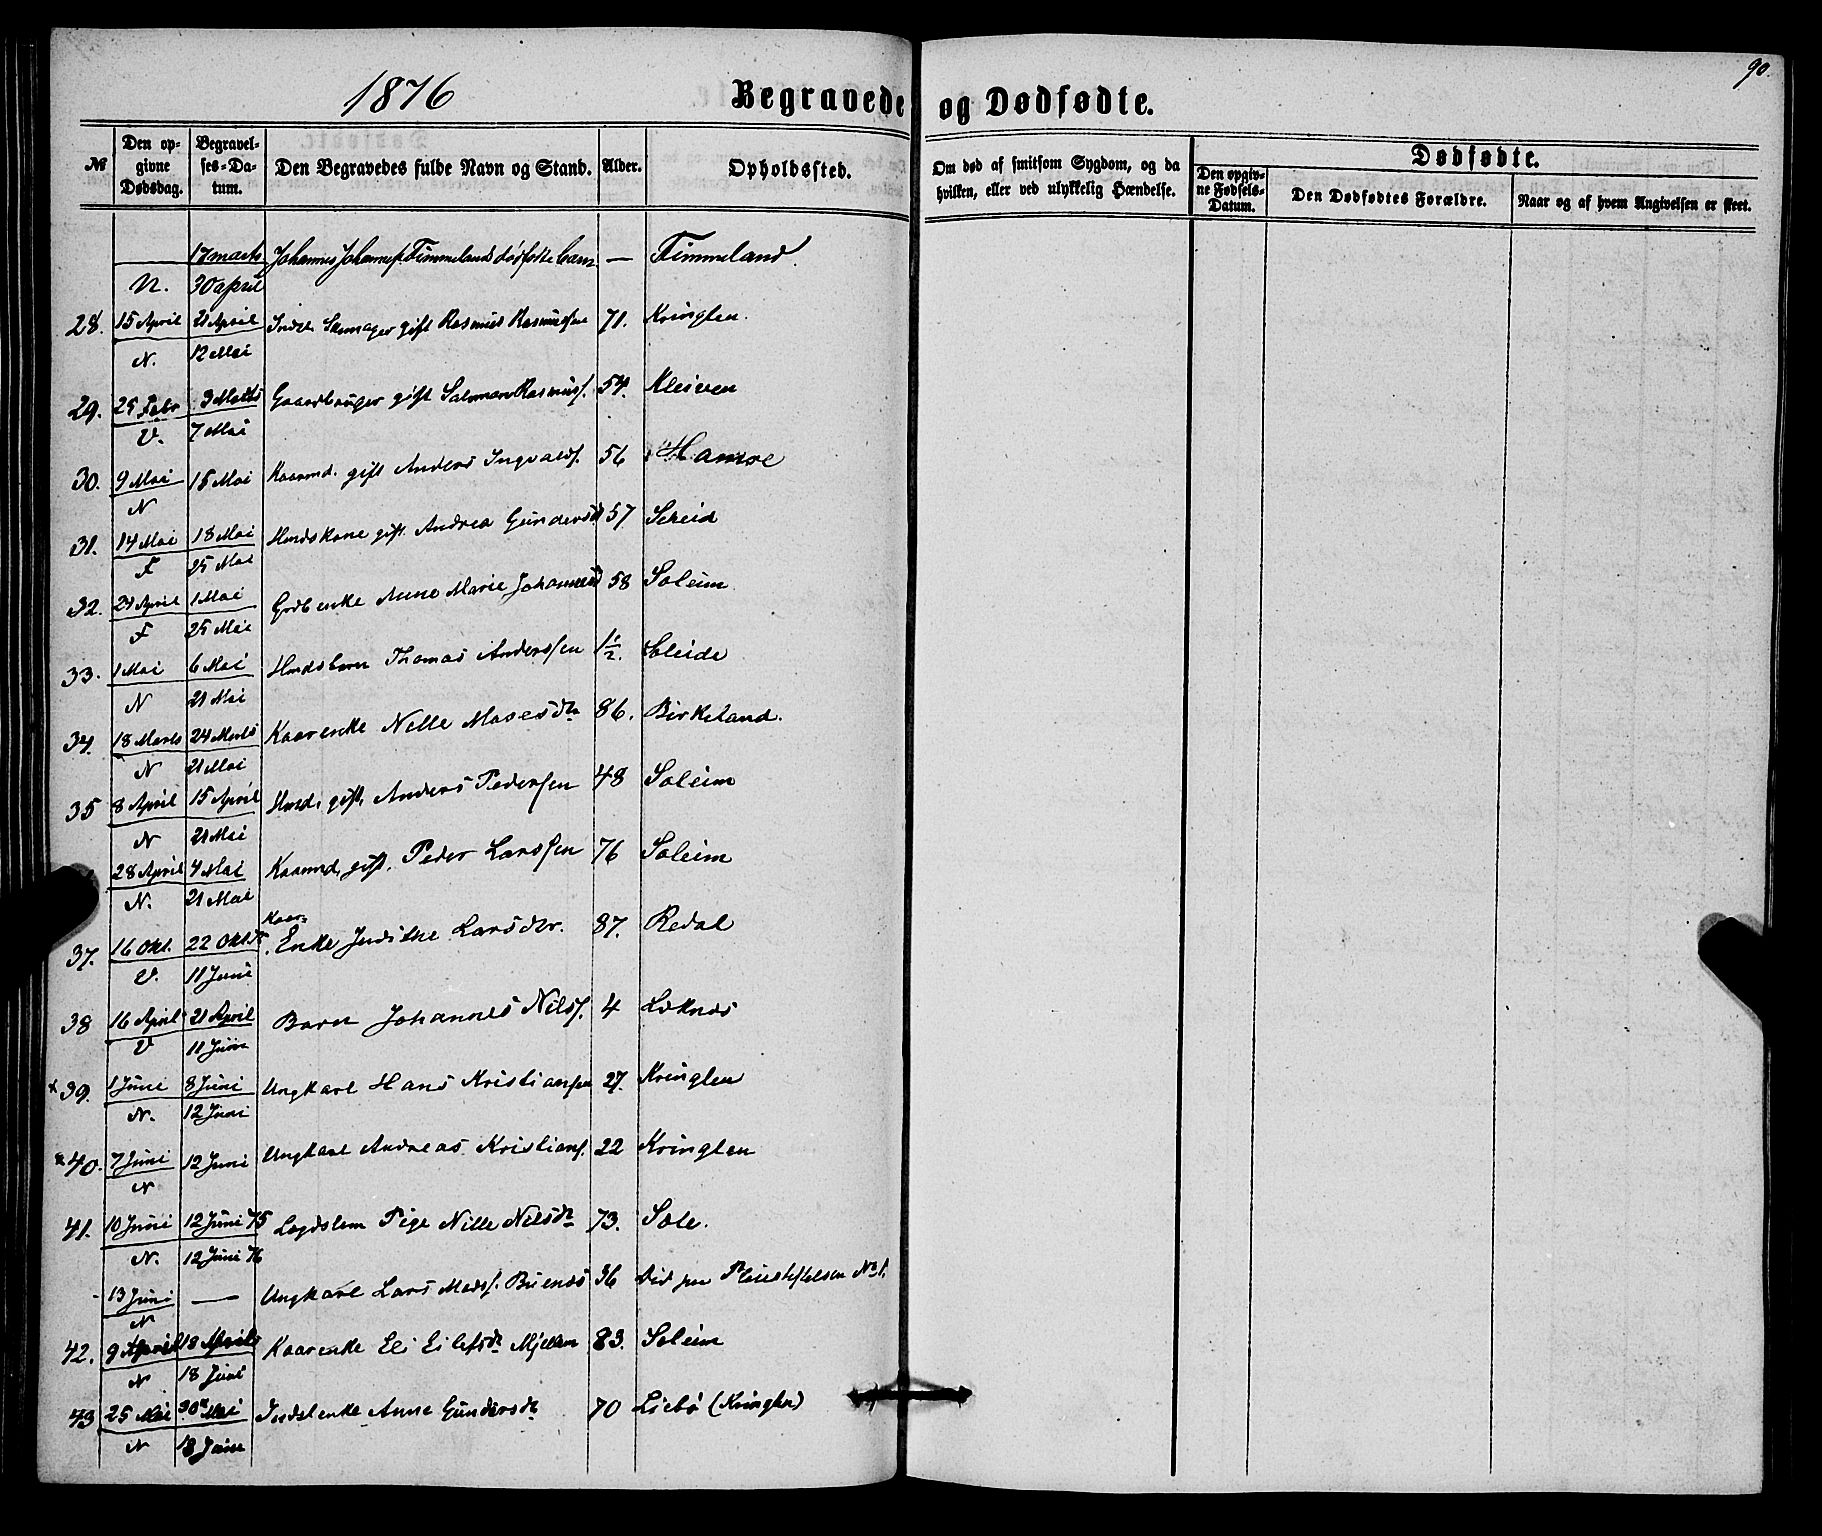 90.
1876 Begravede og Dødfødte.
№ Den opgivne Dødsdag. Begravelses-Datum. Den Begravedes fulde Navn og Stand. Alder. Opholdssted. Om død af smitsom Sygdom, og da hvilken, eller ved ulykkelig Hændelse. Dødfødte. Den opgivne Fødsels-Datum. Den Dødfødtes Forældre. Naar og af hvem Angivelsen er skeet.
17 marts Johannes Johannes. Timmelands dødfødte barn — Timmeland.
N. 30 april
28. 15 April 21 April gift Rasmus Rasmussen 71. Kringlen.
N. 12 Mai
29. 25 Febr 3 Marts Gaardbruger gift Salomon Rasmuss. 54. Kleiven
V. 7 Mai
30. 9 Mai 15 Mai Kaarmd. gift Anders Ingvalds. 56 Hamre
N
31. 14 Mai 18 Mai Husdskone gift Andrea Gundersd 57 Scheid
F 25 Mai
32. 24 April 1 Mai Grdb enke Anne Marie Johannesd 58 Soleim
F 25 Mai
33. 1 Mai 6 Mai Thomas Anderssen 1½. Scleide
N 21 Mai
34. 18 Marts 24 Marts Kaarenke Nille Mosesdtr 86. Birkeland.
N 21 Mai
35 8 April 15 April Husmd. gift. Anders Pederssen 48 Soleim
N 21 Mai
28 April 4 Mai Kaarmd. gift. Peder Larssen 76 Soleim
N. 21 Mai
37. 16 Okt. 22 Oktbr Kaar- Enke Judithe Larsdtr. 87. Redal
V. 11 Juni
38 16 April 21 April Barn Johannes Nilss. 4 Løknes
V 11 Juni
x 39. 1 Juni 8 Juni Ungkarl Hans Kristiansen 27. Kringlen
N. 12 Juni
x 40. 7 Juni 12 Juni Ungkarl Andreas Kristians. 22 Kringlen
N
41. 10 Juni 12 Juni 75 Lægdslem Pige Nille Nilsdtr 73. Sole.
N. 12 Juni 76
13 Juni — Ungkarl Lars Mads. Buenes 36 № 1.
N
42. 9 April 18 April Kaarenke Eli Eilefsdtr Mjellem 83. Soleim
N 18 Juni
43 25 Mai 30te Mai Indstenke Anne Gundersdtr 70 Liebø (Kringlen)
N 18 Juni